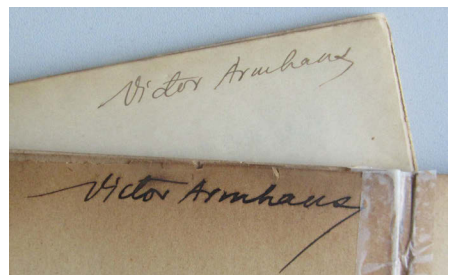 Victor Armhaus
Victor Armhaus